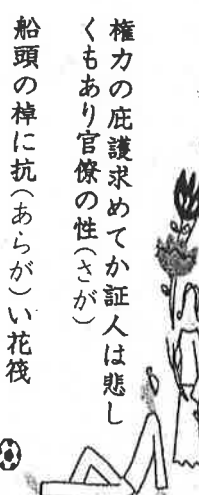 権力の庇護求めてか証人は悲し
くもあり官僚の性(さが)
船頭の棹に抗(あらが)い花筏